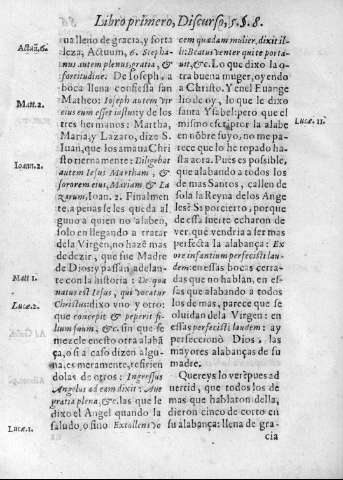 Libro primero, Discurso, 5. §. 8.
Actuũ, 6.
Matt. 2.
Ioann. 2.
Matt 1.
Lucæ. 2.
Lucæ. 1.
tua lleno de gracia, y forta
leza, Actuum, 6. Stepha-
nus autem plenus gratia, &
fortitudine. De Ioseph, a
boca llena confiessa san
Matheo: Ioseph autem vir
eius cum esset iustus y de los
tres hermanos: Martha,
Maria, y Lazaro, dize S.
Iuan, que los amaua Chri
sto tiernamente: Diligebat
autem Iesus Martham, &
sororem eius, Mariam & La
zarum, Ioan. 2. Finalmen
te, a penas se les queda al
guno a quien no alaben,
solo en llegando a tratar
de la Virgen, no hazẽ mas
de dezir, que fue Madre
de Dios: y passan adelan-
te con la historia: De qua
natus est Iesus, qui vocatur
Christus: dixo vno y otro:
que concepit & peperit fi-
lium suum, &c. sin que se
mezcle en esto otra alabã
ça, o si a caso dizen algu-
na, es meramente, refirien
dolas de otros: Ingressus
Angelus ad eam dixit: Aue
gratia plena, &c. las que le
dixo el Angel quando la
saludo, o sino Extollens vo
cem quædam mulier, dixit il-
li: Beatus venter qui te porta-
uit, &c. Lo que dixo la o-
tra buena muger, oyendo
a Christo. Y en el Euange
lio de oy, lo que le dixo
santa Ysabel: pero que el
mismo escriptor la alabe
en nõbre suyo, no me pa-
rece que lo he topado ha
sta aora. Pues es possible,
que alabando a todos los
de mas Santos, callen de
sola la Reyna de los Ange
les? Si por cierto, porque
de essa suerte echaron de
ver que vendria a ser mas
perfecta la alabança: Ex
ore infantium perfecisti lau-
dem: en essas bocas cerra-
das que no hablan, en es-
sas que alabando a todos
los de mas, parece que se
oluidan de la Virgen: en
essas perfecisti laudem: ay
perfeccionò Dios, las
mayores alabanças de su
madre.
Quereys lo ver? pues ad
uertid, que todos los de
mas que hablaron della,
dieron cinco de corto en
su alabança: llena de gra-
cia
Lucæ. 11.